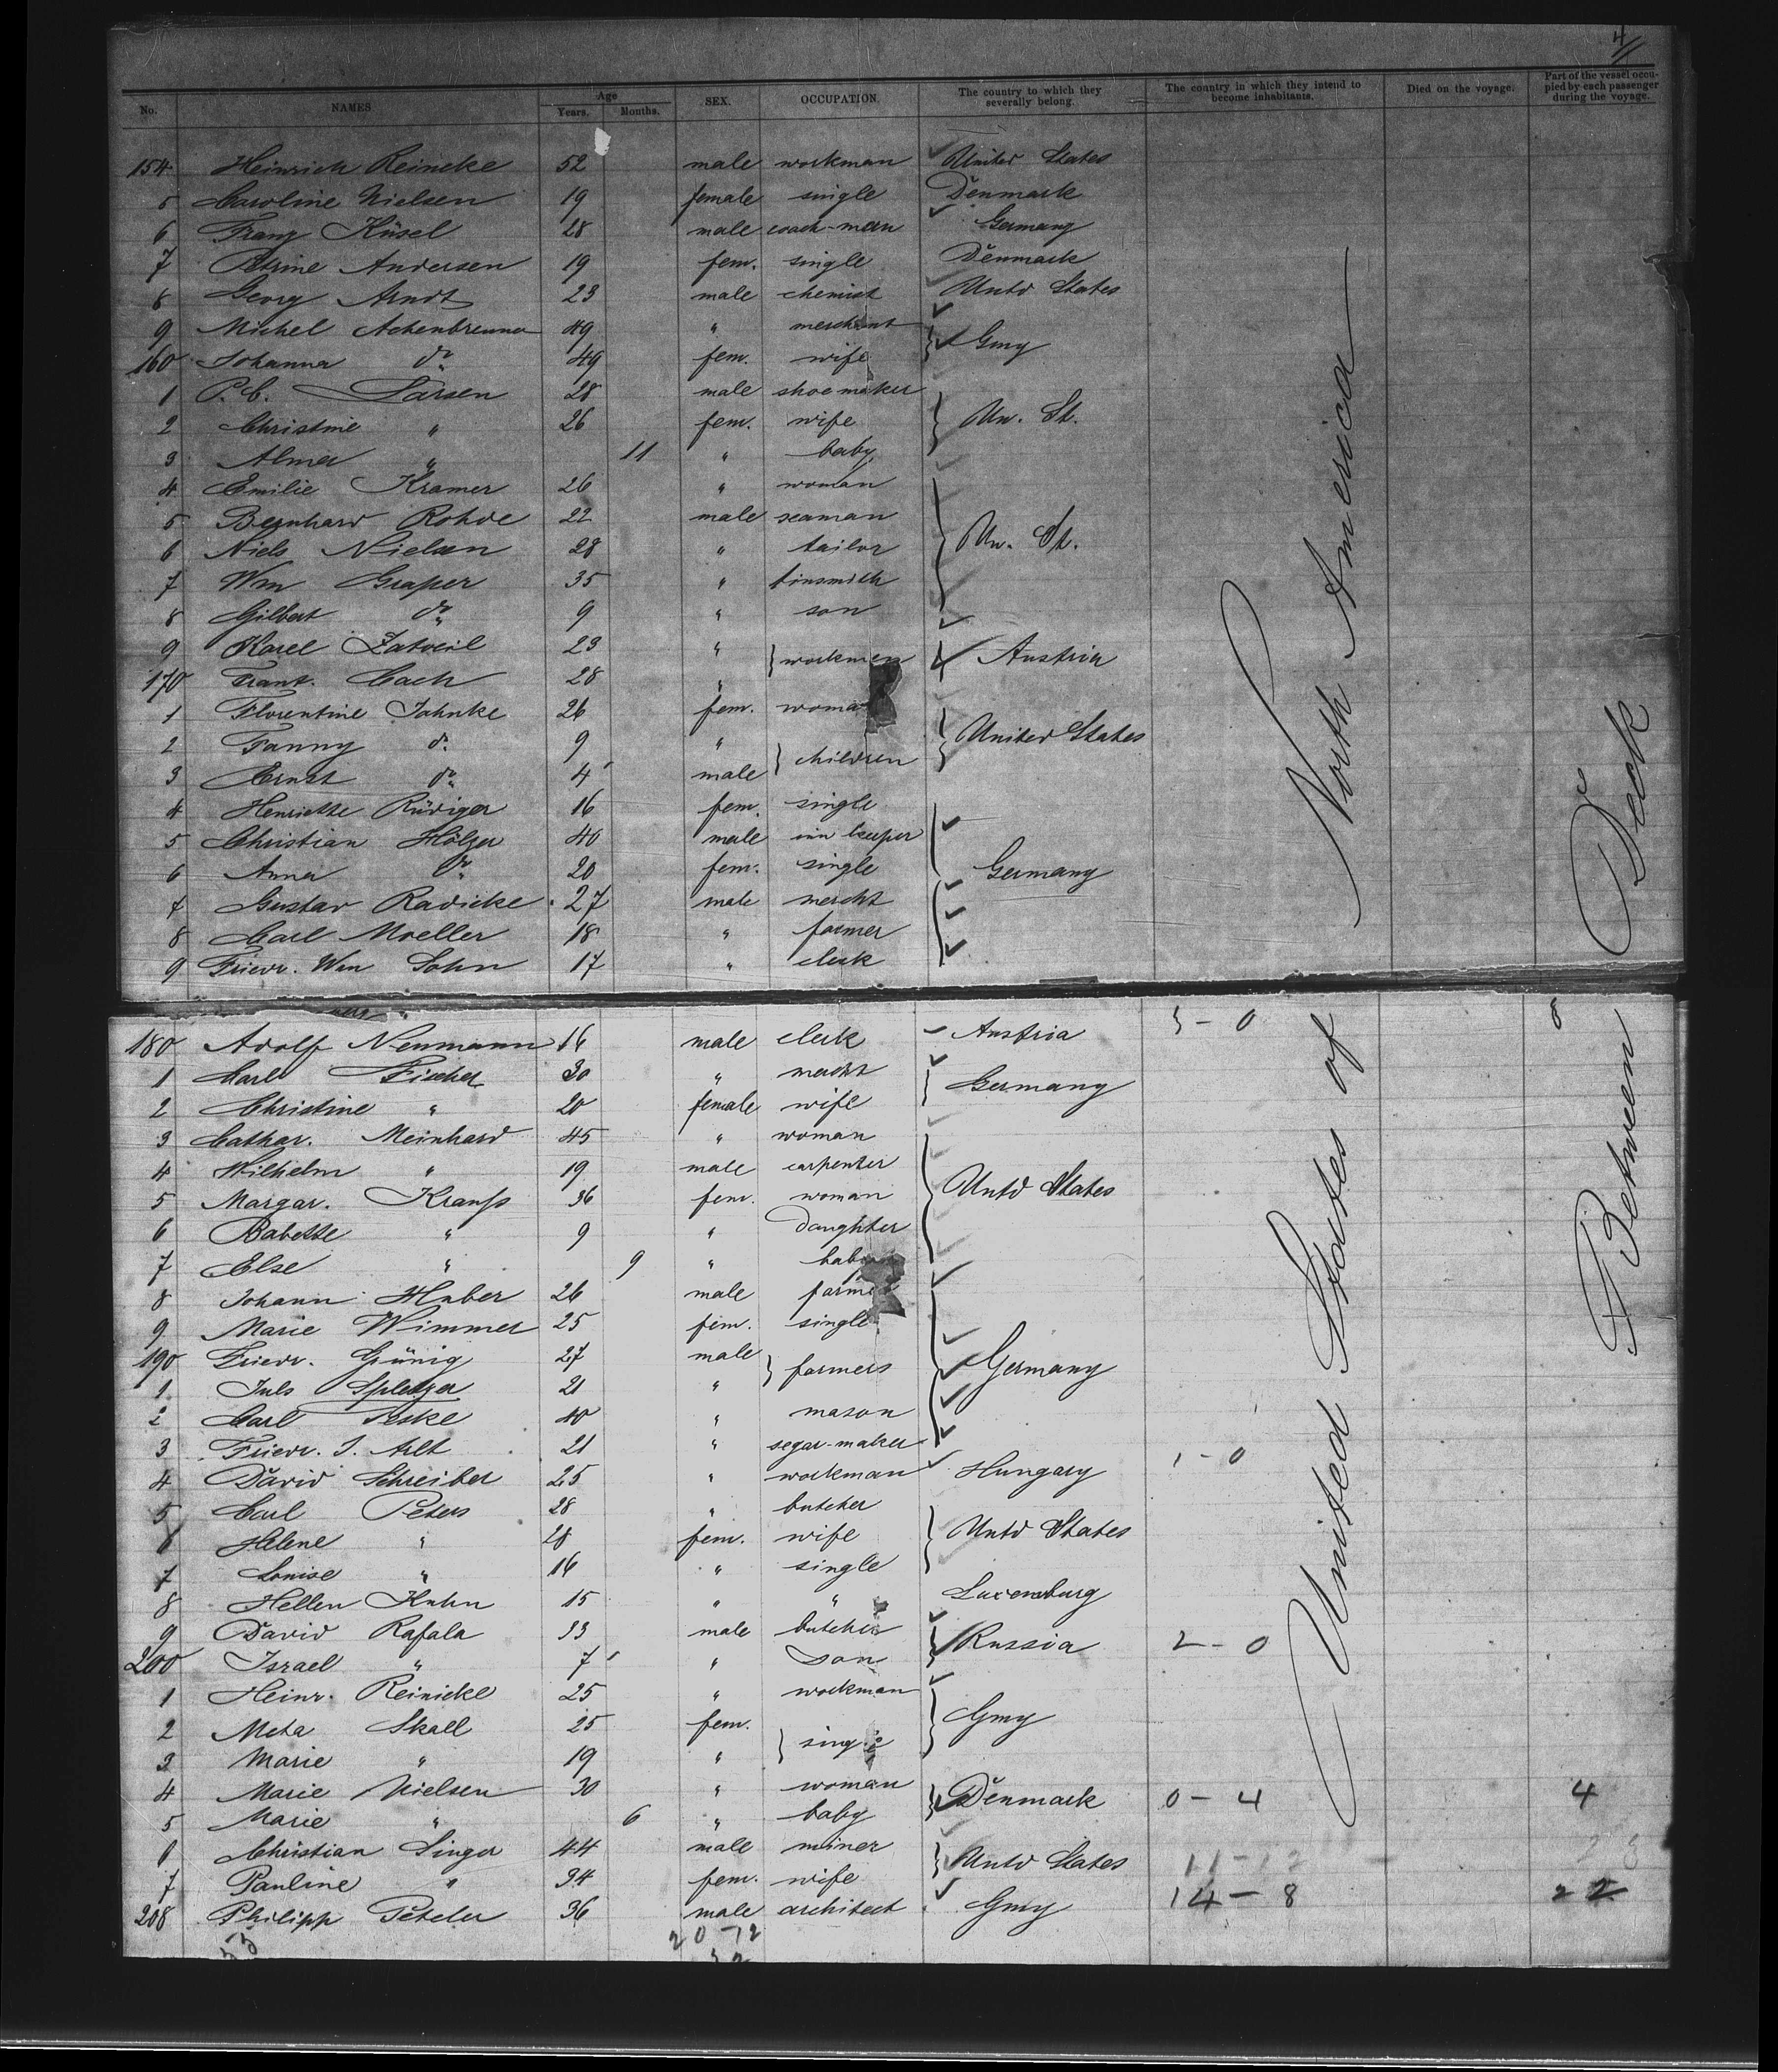 4
No. NAMES Age Years. Months. SEX. OCCUPATION. The country to which they severally belong. The country in which they intend to become inhabitants. Died on the voyage. Part of the vessel occupied by each passenger during the voyage.
154 Heinrich Reineke 52 male workman United States
5 Caroline Nielsen 19 female single Denmark
6 Franz Küsel 28 male coach-man Germany
7 Petrine Andersen 19 fem. single Denmark
8 Georg Arndt 23 male chemist Untd States
9 Michel Achenbrenner 49 " merchant
160 Johanna do 49 fem. wife } Gmy
1 P. C. Larsen 28 male shoemaker
2 Christine " 26 fem. wife } Un. St.
3 Alma " 11 " baby
4 Emilie Kramer 26 " woman
5 Bernhard Rohde 22 male seaman
6 Niels Nielsen 28 " tailor } Un. St.
7 Wm Graper 35 " tinsmith
8 Gilbert do 9 " son
9 Karel 23 " } workmen Austria
170 Frant. Cach 28 "
1 Florentine Jahnke 26 fem. woma
2 Fanny do 9 " } children United States
3 Ernst do 4 male
4 Henriette Rüdiger 16 fem. single
5 Christian Hölzer 40 male inn keeper
6 Anna do 20 fem. single Germany
7 Gustav Radicke 27 male mercht
8 Carl Moeller 18 " farmer
9 Friedr. Wm Sohn 17 " clerk
North America
Deck
180 Adolf Neumann 16 male clerk Austria - 0
1 Carl Fischer 30 " mercht } Germany
2 Christine " 20 female wife
3 Cathar. Meinhard 45 " woman
4 Wilhelm " 19 male carpenter
5 Margar. Krauss 36 fem. woman } Untd States
6 Babette " 9 " Daughter
7 Else " 9 " bab
8 Johann Huber 26 male farme
9 Marie Wimmer 25 fem. single
190 Friedr. Grünig 27 male } farmers Germany
1 Juls Spletzer 21 "
2 Carl Teske 40 " mason
3 Friedr. J. Arlt 21 " segar-maker
4 David Schreiber 25 " workman Hungary 1 - 0
5 Carl Peters 28 " butcher
6 Helene " 28 fem. wife } Untd States
7 Louise " 16 " single
8 Hellen Kuhn 15 " " Luxemburg
9 David Rafala 33 male butcher } Russia 2 - 0
200 Israel " 7 " son
1 Heinr. Reinicke 25 " workman
2 Meta Skall 25 fem. } single Gmy
3 Marie " 19 "
4 Marie Nielsen 30 " woman } Denmark 0 - 4 4
5 Marie " 6 " baby
6 Christian Singer 44 male miner } Untd States 11 - 12
7 Pauline " 34 fem. wife
208 Philipp 36 male architect Gmy 14 - 8 22
20 - 12
United States of
Between